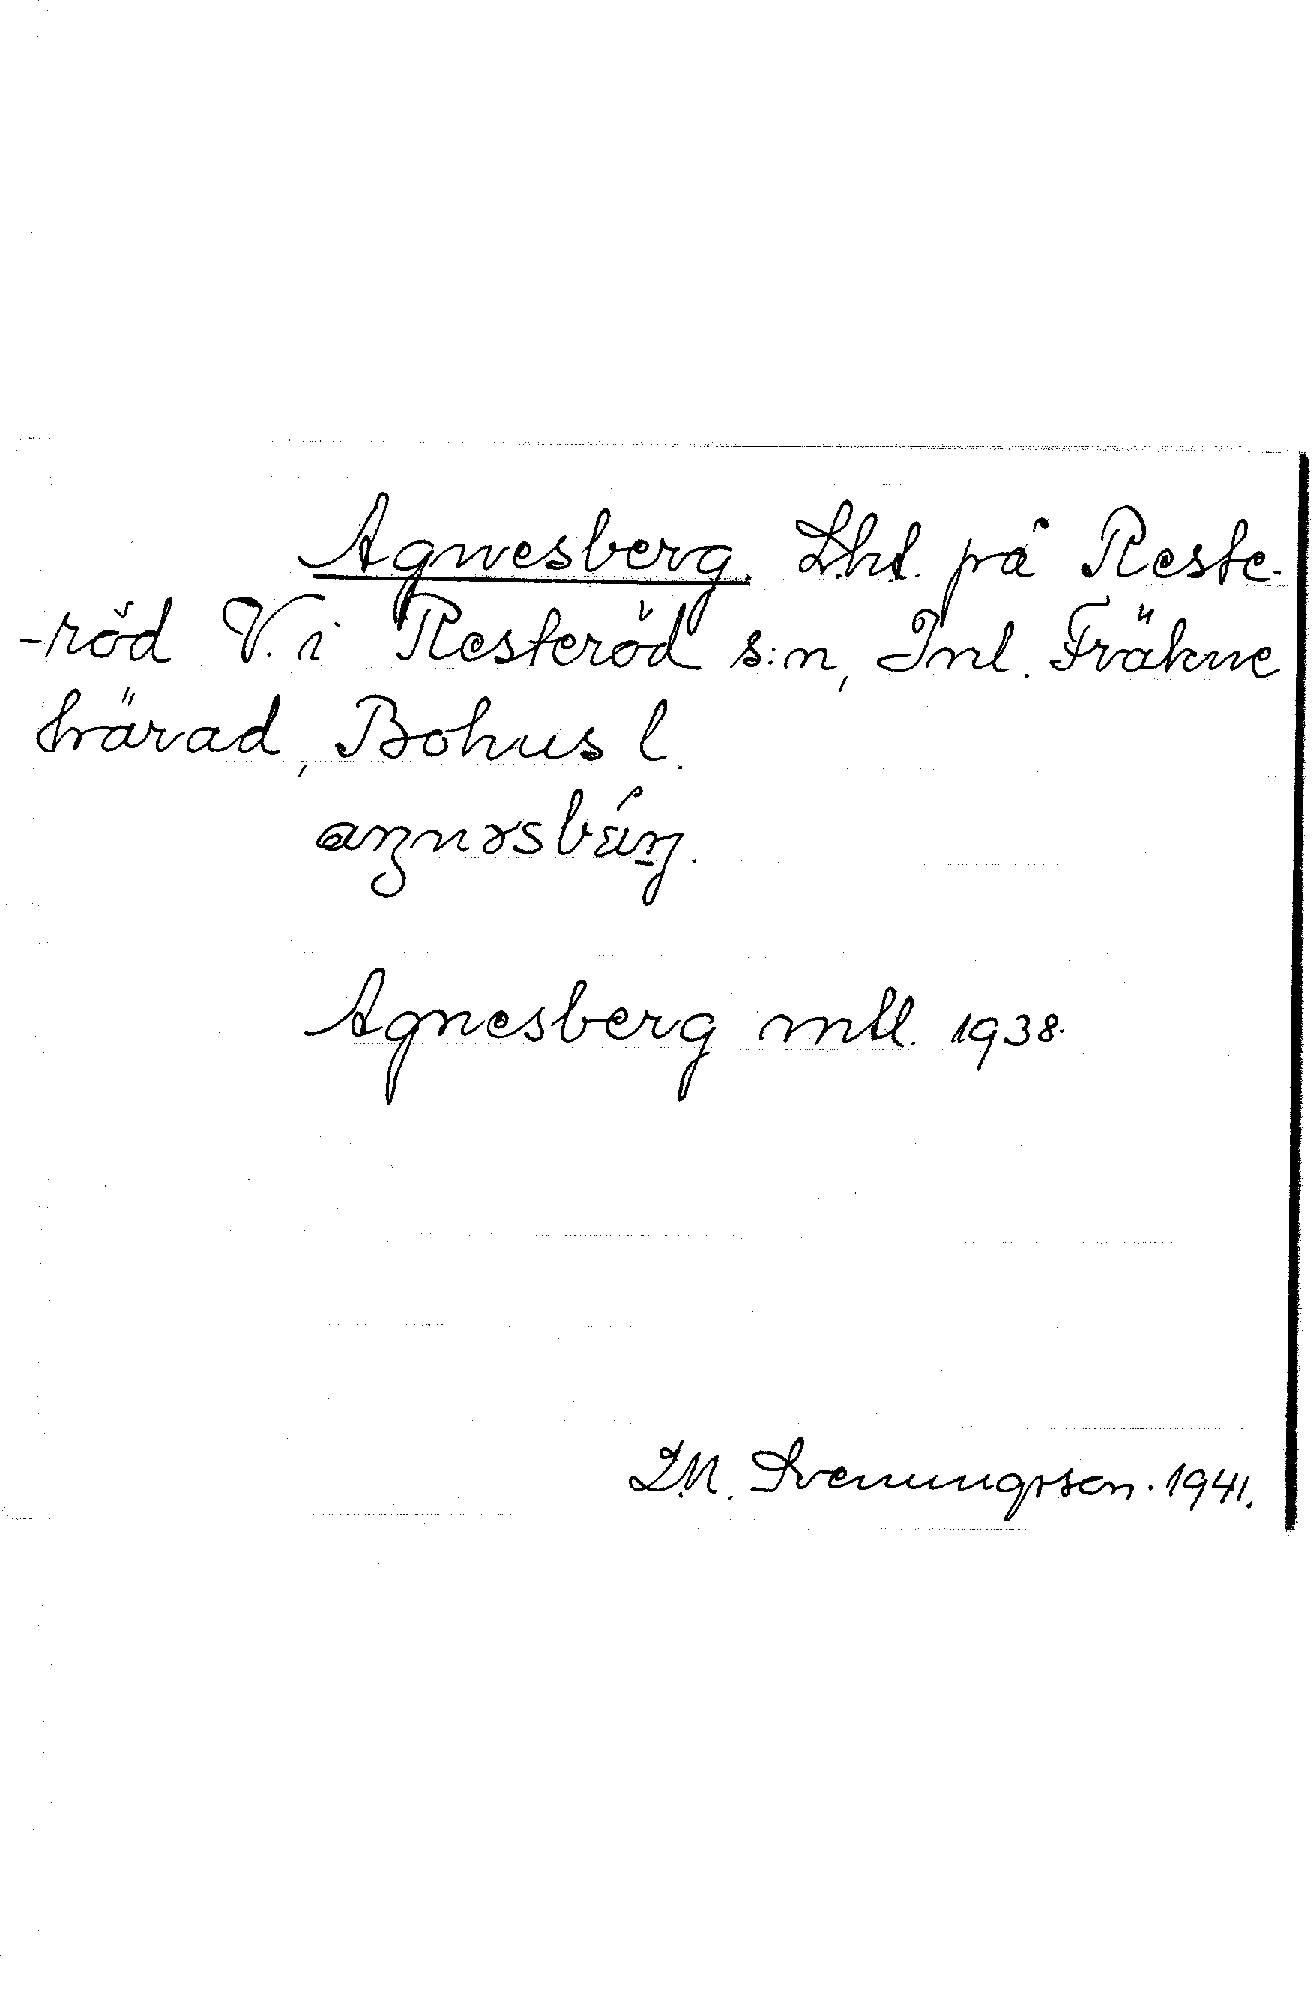 Agnesberg. Lht. på Reste-
-röd V. i Resteröd s:n, Inl. Fräkne
härad, Bohus l.
Agnesberg mtl. 1938.
I.M. Svenungsson. 1941.